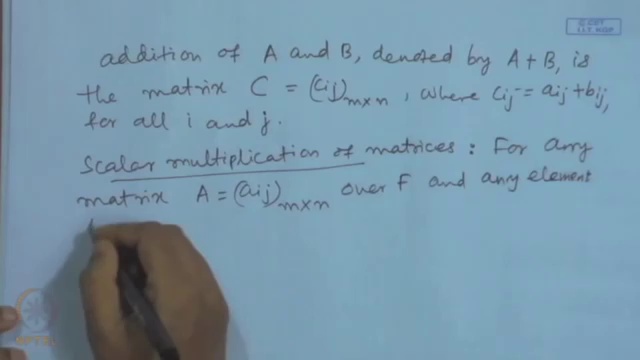 © CET
I.I.T. KGP
addition of A and B, denoted by A + B, is
the matrix C = (cij)m×n, where cij = aij + bij,
for all i and j.
Scalar multiplication of matrices : For any
matrix A = (aij)m×n over F and any element
NPTEL